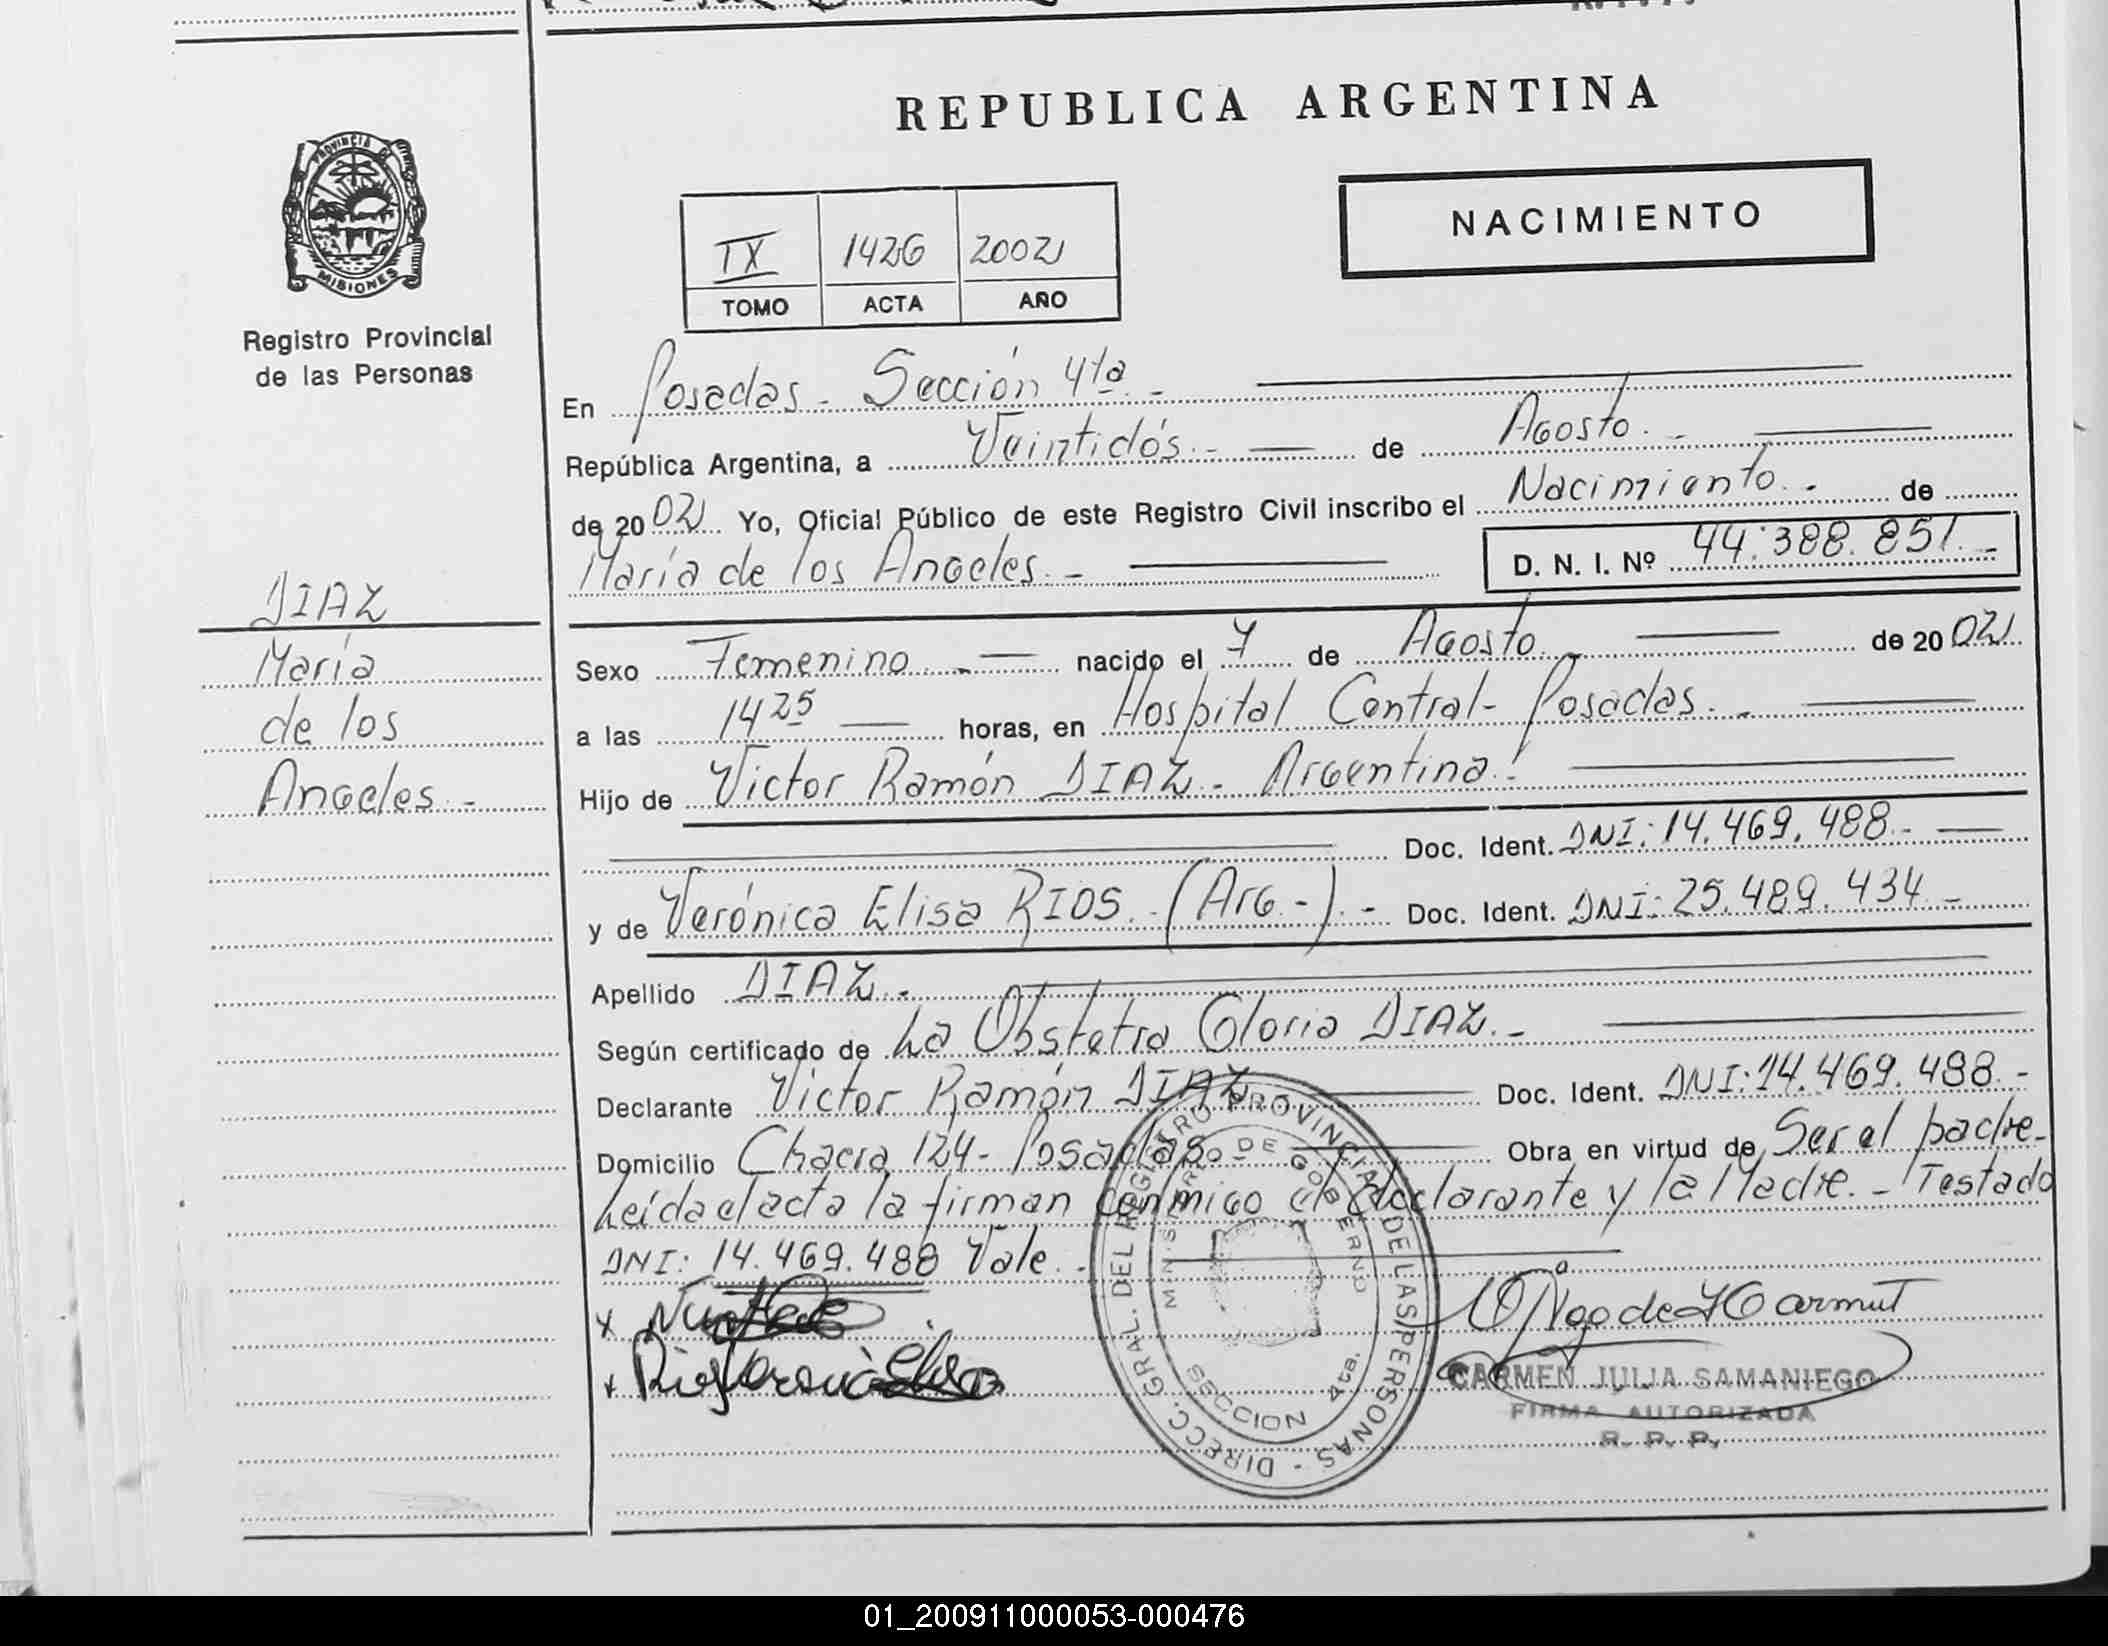 REPUBLICA ARGENTINA
PROVINCIA DE
MISIONES
Registro Provincial
de las Personas
NACIMIENTO
IX 1426 2002
TOMO ACTA AÑO
En Posadas - Sección 4ta. -
República Argentina, a Veintidós. - de Agosto. -
de 2002 Yo, Oficial Público de este Registro Civil inscribo el Nacimiento. - de
María de los Angeles. -
D. N. I. Nº 44.388.851. -
DIAZ
María
de los
Angeles. -
Sexo Femenino. - nacido el 7 de Agosto. - de 2002
a las 14 25 horas, en Hospital Central - Posadas. -
Hijo de Victor Ramón DIAZ - Argentina. -
Doc. Ident. DNI: 14.469.488. -
y de Verónica Elisa RIOS. - (Arg. -). - Doc. Ident. DNI: 25.489.434. -
Apellido DIAZ. -
Según certificado de La Obstetra Gloria DIAZ. -
Declarante Victor Ramón DIAZ Doc. Ident. DNI: 14.469.488. -
Domicilio Chacra 124 - Posadas. - Obra en virtud de Ser el padre. -
Leída el acta la firman conmigo el declarante y la Madre. - Testado
DNI: 14.469.488 Vale. -
x
x Rios Veronica Elisa
DIRECC. GRAL. DEL REGISTRO PROVINCIAL DE LAS PERSONAS -
MINISTERIO DE GOBIERNO
SECCION 4ta.
CARMEN JULIA SAMANIEGO
FIRMA AUTORIZADA
R. P. P.
01_200911000053-000476